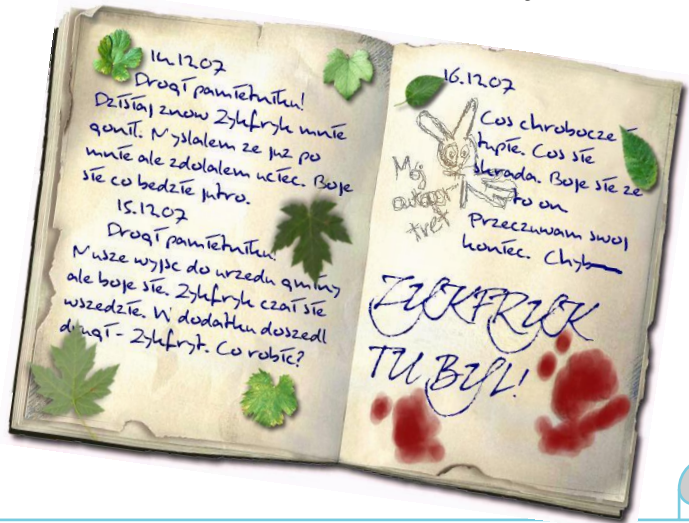 14.12.07
Drogi pamietniku!
Dzisiaj znow Zykfryk mnie
gonil. Myslalem ze juz po
mnie ale zdolalem uciec. Boje
sie co bedzie jutro.
15.12.07
Drogi pamietniku!
Musze wyjsc do urzedu gminy
ale boje sie. Zykfryk czai sie
wszedzie. W dodatku doszedl
drugi - Zykfryt. Co robic?
16.12.07
Cos chrobocze i
tupie. Cos sie
skrada. Boje sie ze
to on
Przeczuwam swoj
koniec. Chyb
Moj
autopor
tret
ZYKFRYK
TU BYL!